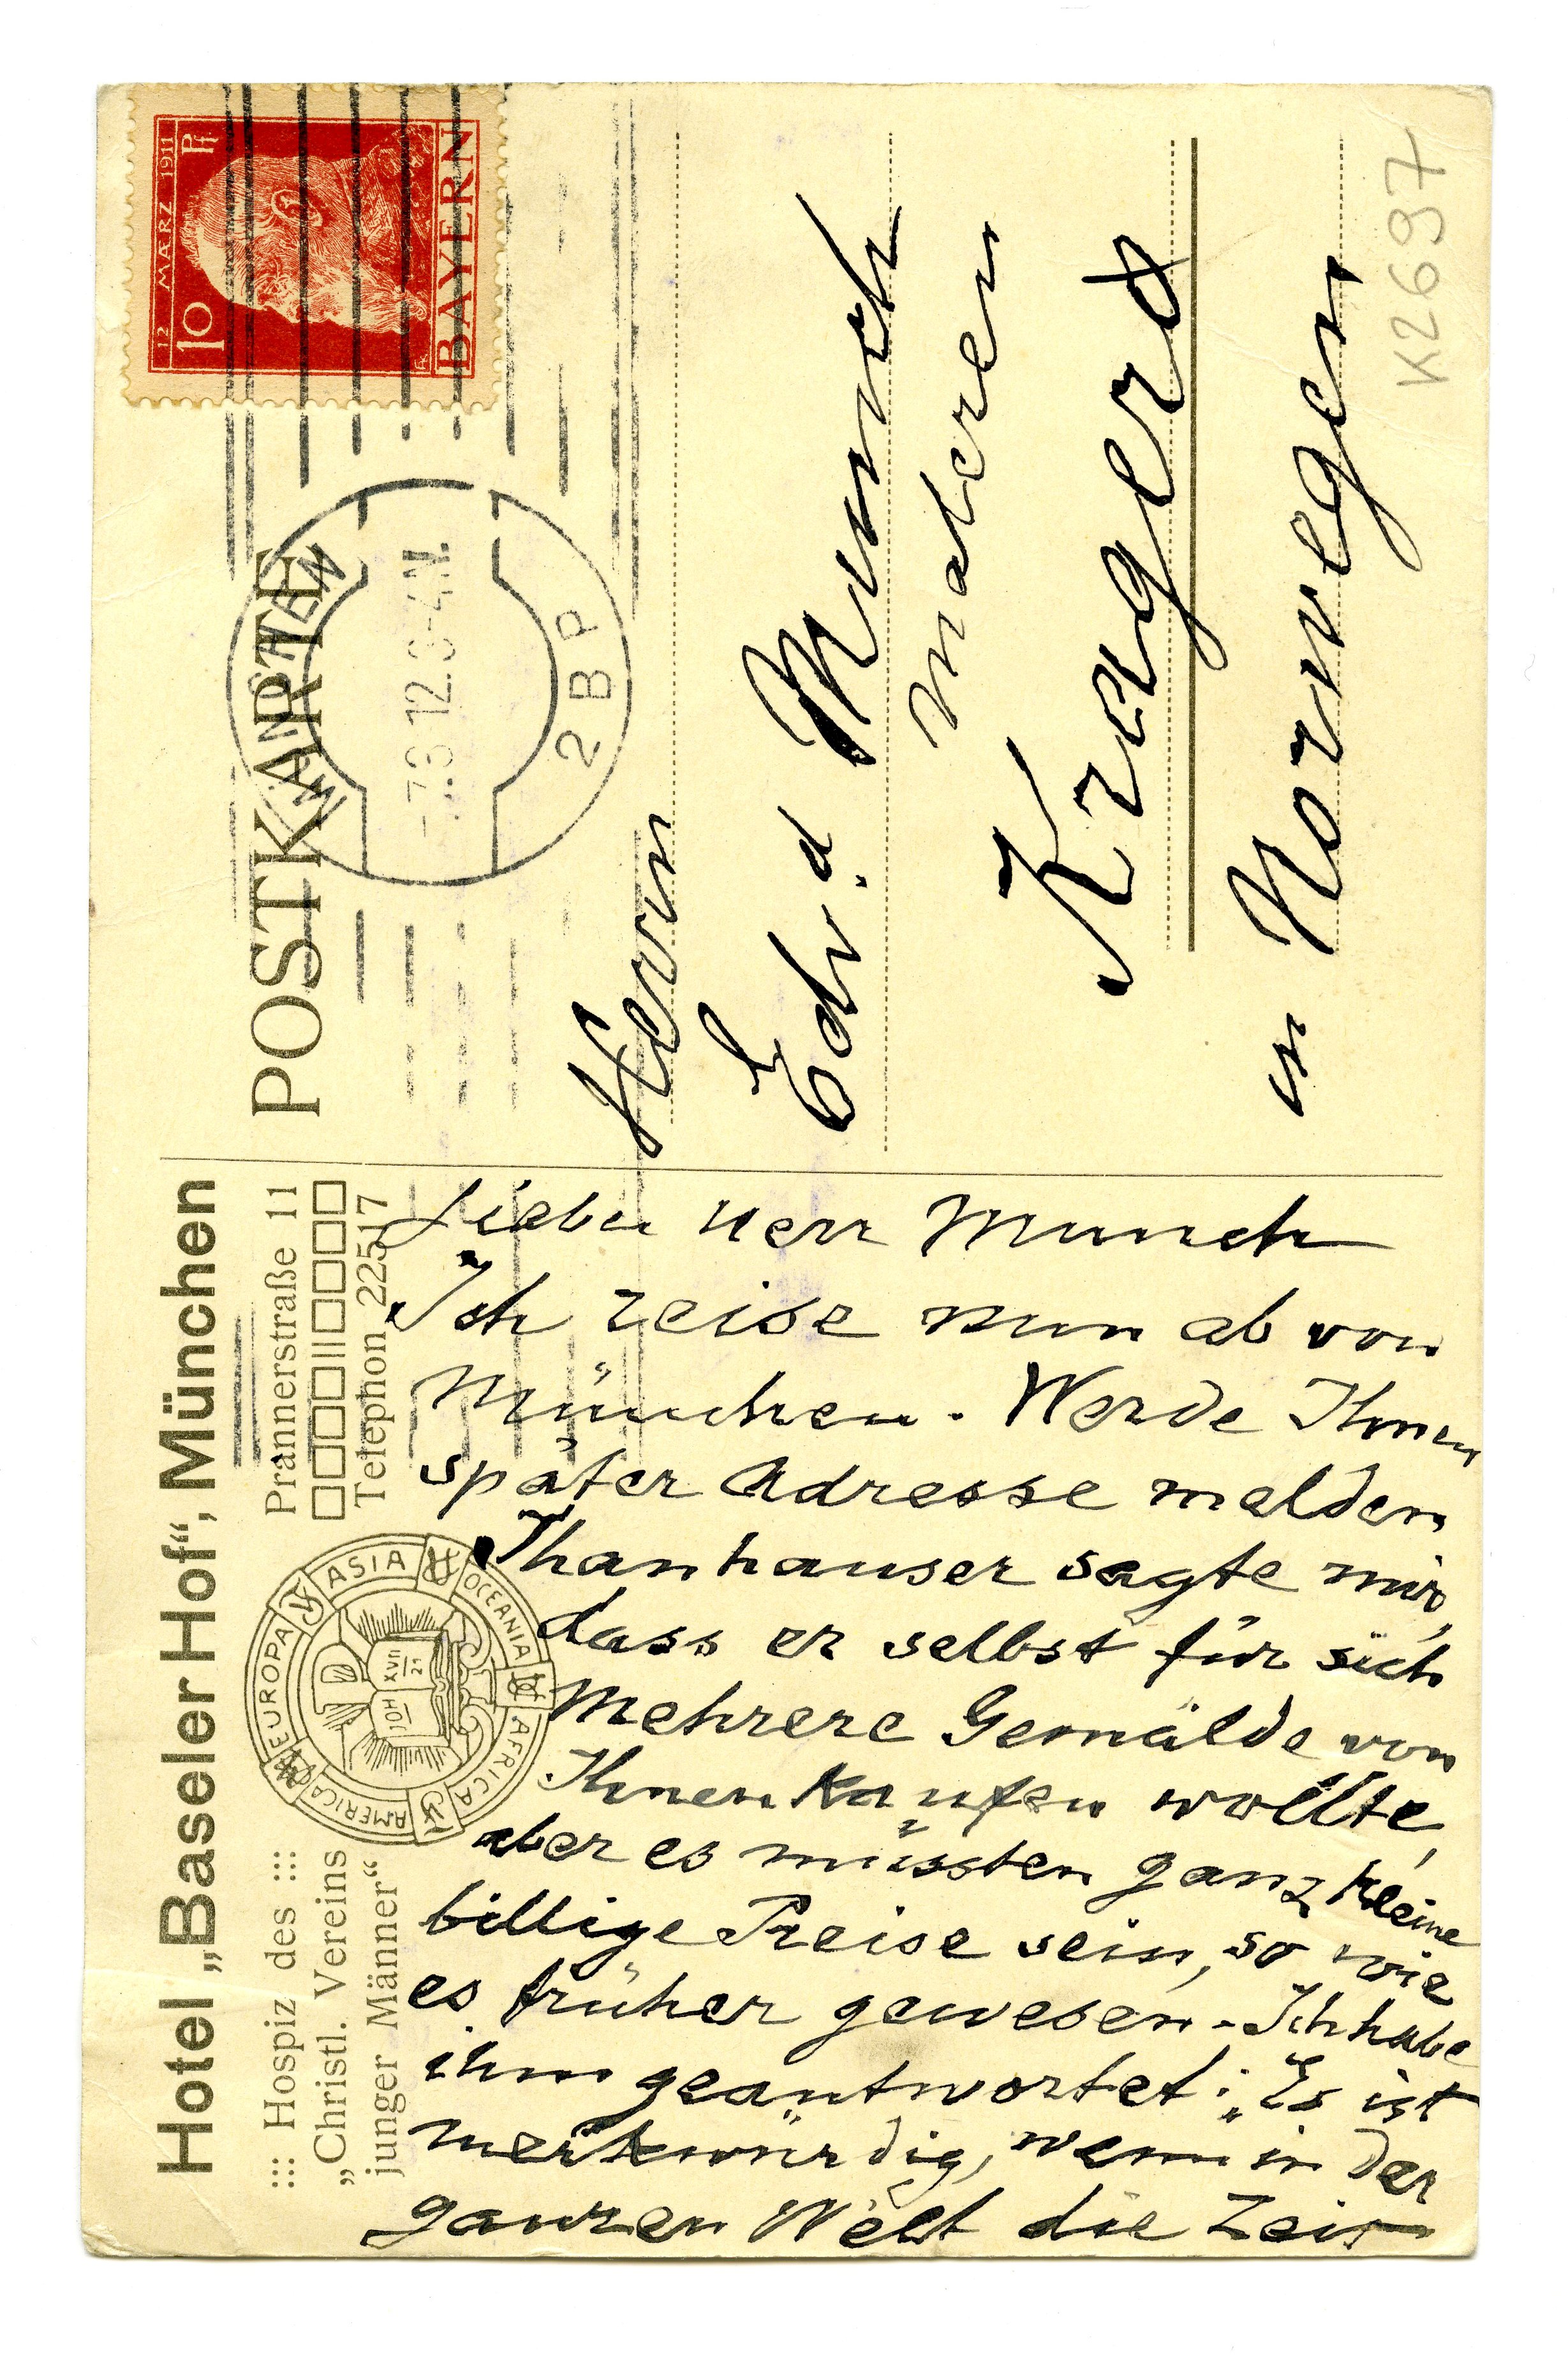 Hotel „Baseler Hof“, München
::: Hospiz des :::
„Christl. Vereins
junger Männer“
EUROPA
ASIA
OCEANIA
AFRICA
AMERICA
JOH XVII 21
Prannerstraße 11
Telephon 22517
Lieber Herr Munch
Ich reise nun ab von
München. Werde Ihnen
später Adresse melden.
Thanhauser sagte mir,
dass er selbst für sich
Mehrere Gemälde von
Ihnen kaufen wollte,
aber es müssten ganz kleine
billige Preise sein, so wie
es früher gewesen. Ich habe
ihm geantwortet: „Es ist
merkwürdig, wenn in der
ganzen Welt die Zeit
POSTKARTE
12 MÄRZ 1911
10 Pf
BAYERN
MÜNCHEN
7.3 12.3-4.N.
2 B P
Herrn
Edv.d Munch
maleren
Kragerø
in Norwegen
K2697